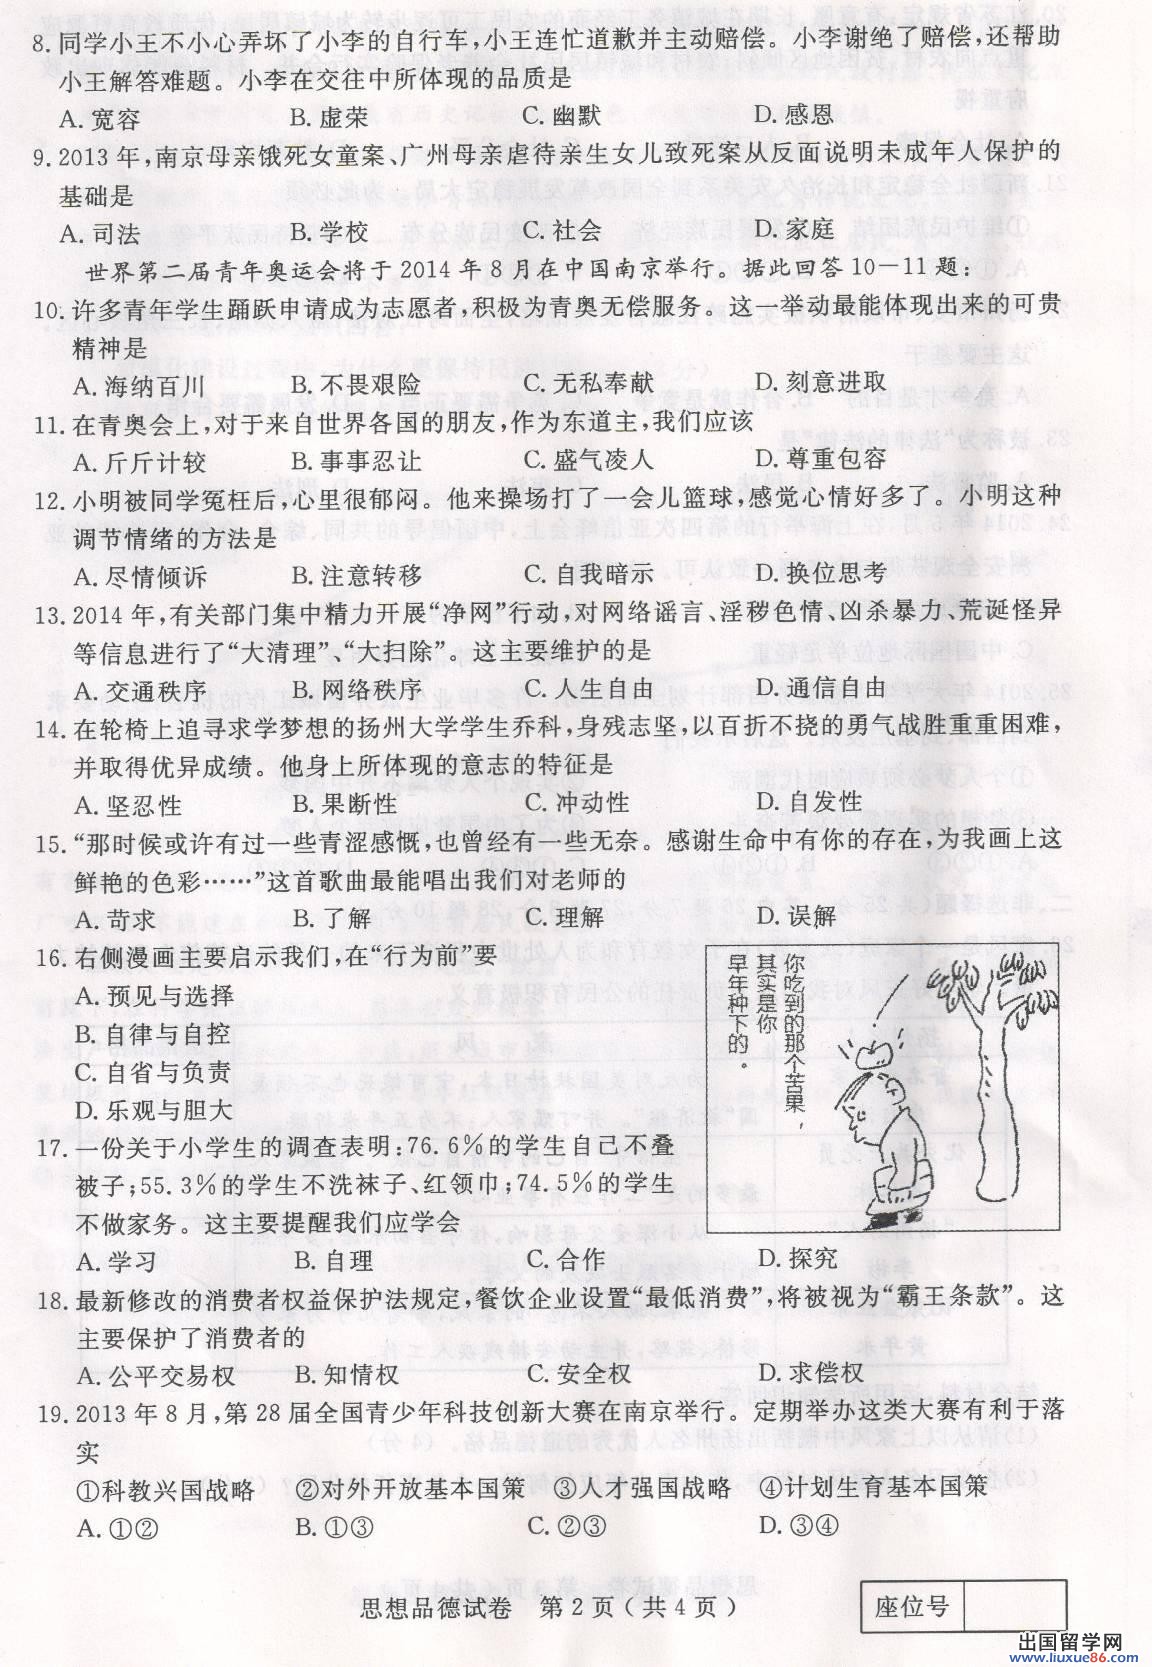 8. 同学小王不小心弄坏了小李的自行车,小王连忙道歉并主动赔偿。小李谢绝了赔偿,还帮助
小王解答难题。小李在交往中所体现的品质是
A. 宽容 B. 虚荣 C. 幽默 D. 感恩
9. 2013 年,南京母亲饿死女童案、广州母亲虐待亲生女儿致死案从反面说明未成年人保护的
基础是
A. 司法 B. 学校 C. 社会 D. 家庭
世界第二届青年奥运会将于 2014 年 8 月在中国南京举行。据此回答 10—11 题:
10. 许多青年学生踊跃申请成为志愿者,积极为青奥无偿服务。这一举动最能体现出来的可贵
精神是
A. 海纳百川 B. 不畏艰险 C. 无私奉献 D. 刻意进取
11. 在青奥会上,对于来自世界各国的朋友,作为东道主,我们应该
A. 斤斤计较 B. 事事忍让 C. 盛气凌人 D. 尊重包容
12. 小明被同学冤枉后,心里很郁闷。他来操场打了一会儿篮球,感觉心情好多了。小明这种
调节情绪的方法是
A. 尽情倾诉 B. 注意转移 C. 自我暗示 D. 换位思考
13. 2014 年,有关部门集中精力开展“净网”行动,对网络谣言、淫秽色情、凶杀暴力、荒诞怪异
等信息进行了“大清理”、“大扫除”。这主要维护的是
A. 交通秩序 B. 网络秩序 C. 人生自由 D. 通信自由
14. 在轮椅上追寻求学梦想的扬州大学学生乔科,身残志坚,以百折不挠的勇气战胜重重困难,
并取得优异成绩。他身上所体现的意志的特征是
A. 坚忍性 B. 果断性 C. 冲动性 D. 自发性
15. “那时候或许有过一些青涩感慨,也曾经有一些无奈。感谢生命中有你的存在,为我画上这
鲜艳的色彩……”这首歌曲最能唱出我们对老师的
A. 苛求 B. 了解 C. 理解 D. 误解
16. 右侧漫画主要启示我们,在“行为前”要
A. 预见与选择
B. 自律与自控
C. 自省与负责
D. 乐观与胆大
你吃到的那个苦果,
其实是你
早年种下的。
17. 一份关于小学生的调查表明:76.6%的学生自己不叠
被子;55.3%的学生不洗袜子、红领巾;74.5%的学生
不做家务。这主要提醒我们应学会
A. 学习 B. 自理 C. 合作 D. 探究
18. 最新修改的消费者权益保护法规定,餐饮企业设置“最低消费”,将被视为“霸王条款”。这
主要保护了消费者的
A. 公平交易权 B. 知情权 C. 安全权 D. 求偿权
19. 2013 年 8 月,第 28 届全国青少年科技创新大赛在南京举行。定期举办这类大赛有利于落
实
①科教兴国战略 ②对外开放基本国策 ③人才强国战略 ④计划生育基本国策
A. ①② B. ①③ C. ②③ D. ③④
思想品德试卷 第 2 页(共 4 页)
座位号
出国留学网
www.liuxue86.com